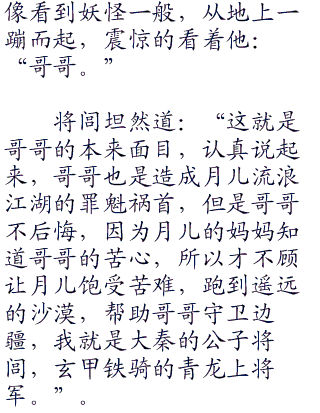 像看到妖怪一般，从地上一
蹦而起，震惊的看着他：
“哥哥。”
将闾坦然道：“这就是
哥哥的本来面目，认真说起
来，哥哥也是造成月儿流浪
江湖的罪魁祸首，但是哥哥
不后悔，因为月儿的妈妈知
道哥哥的苦心，所以才不顾
让月儿饱受苦难，跑到遥远
的沙漠，帮助哥哥守卫边
疆，我就是大秦的公子将
闾，玄甲铁骑的青龙上将
军。”。